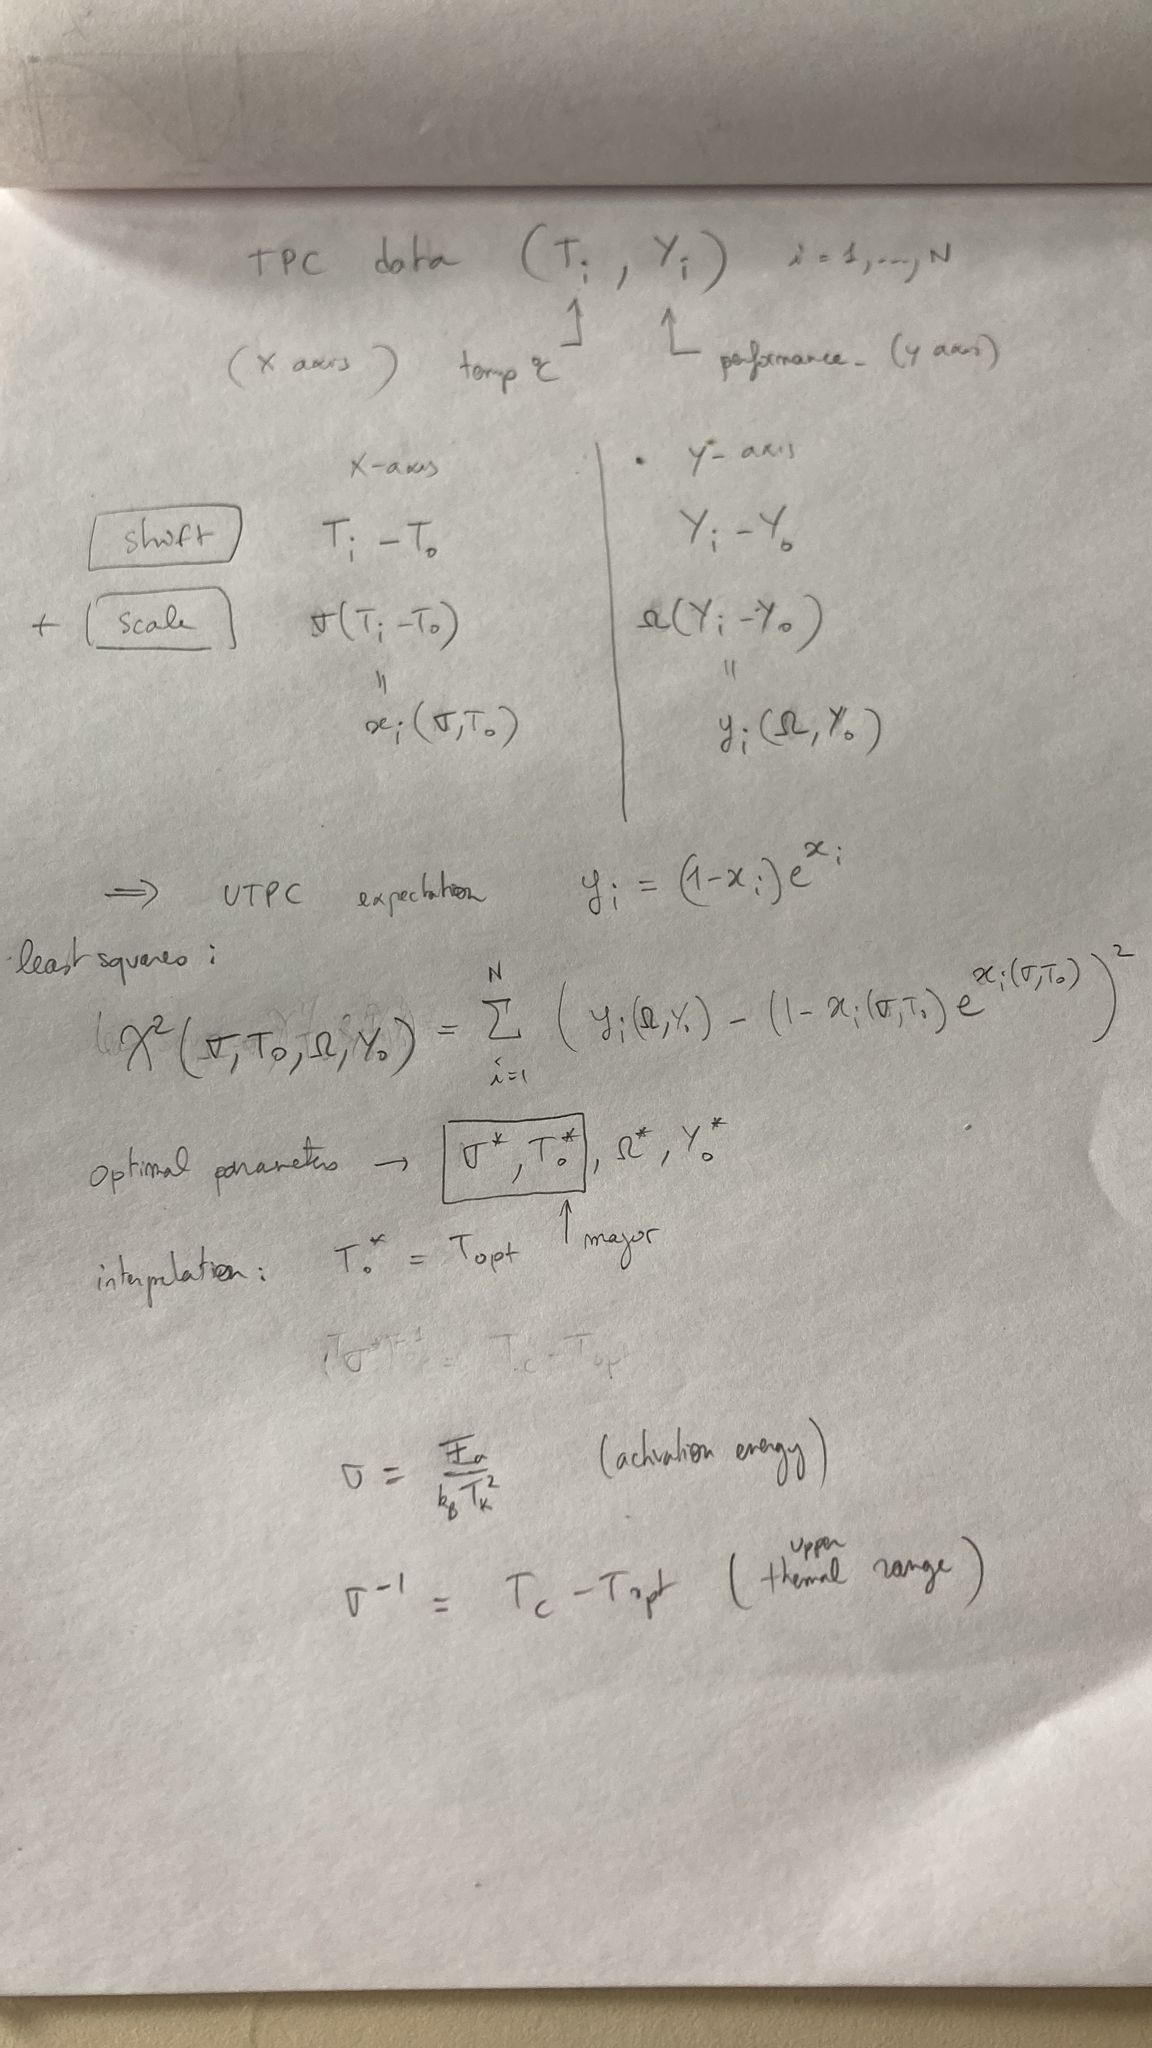 TPC data (Tᵢ, Yᵢ) i = 1, ..., N
(X axis) temp °C ↑ ↑ performance - (y axis)
X-axis • Y-axis
shift Tᵢ - T₀ Yᵢ - Y₀
+ scale σ(Tᵢ - T₀) Ω(Yᵢ - Y₀)
= =
xᵢ(σ, T₀) yᵢ(Ω, Y₀)
⇒ UTPC expectation yᵢ = (1 - xᵢ)e^{xᵢ}
least squares :
χ²(σ, T₀, Ω, Y₀) = Σ_{i=1}^{N} (yᵢ(Ω, Y₀) - (1 - xᵢ(σ, T₀)) e^{xᵢ(σ, T₀)})²
optimal parameters → σ*, T₀*, Ω*, Y₀*
↑ major
interpretation : T₀* = Topt
= Tc - Topt
σ = Ea / k_B T_K² (activation energy)
σ⁻¹ = Tc - Topt (upper thermal range)